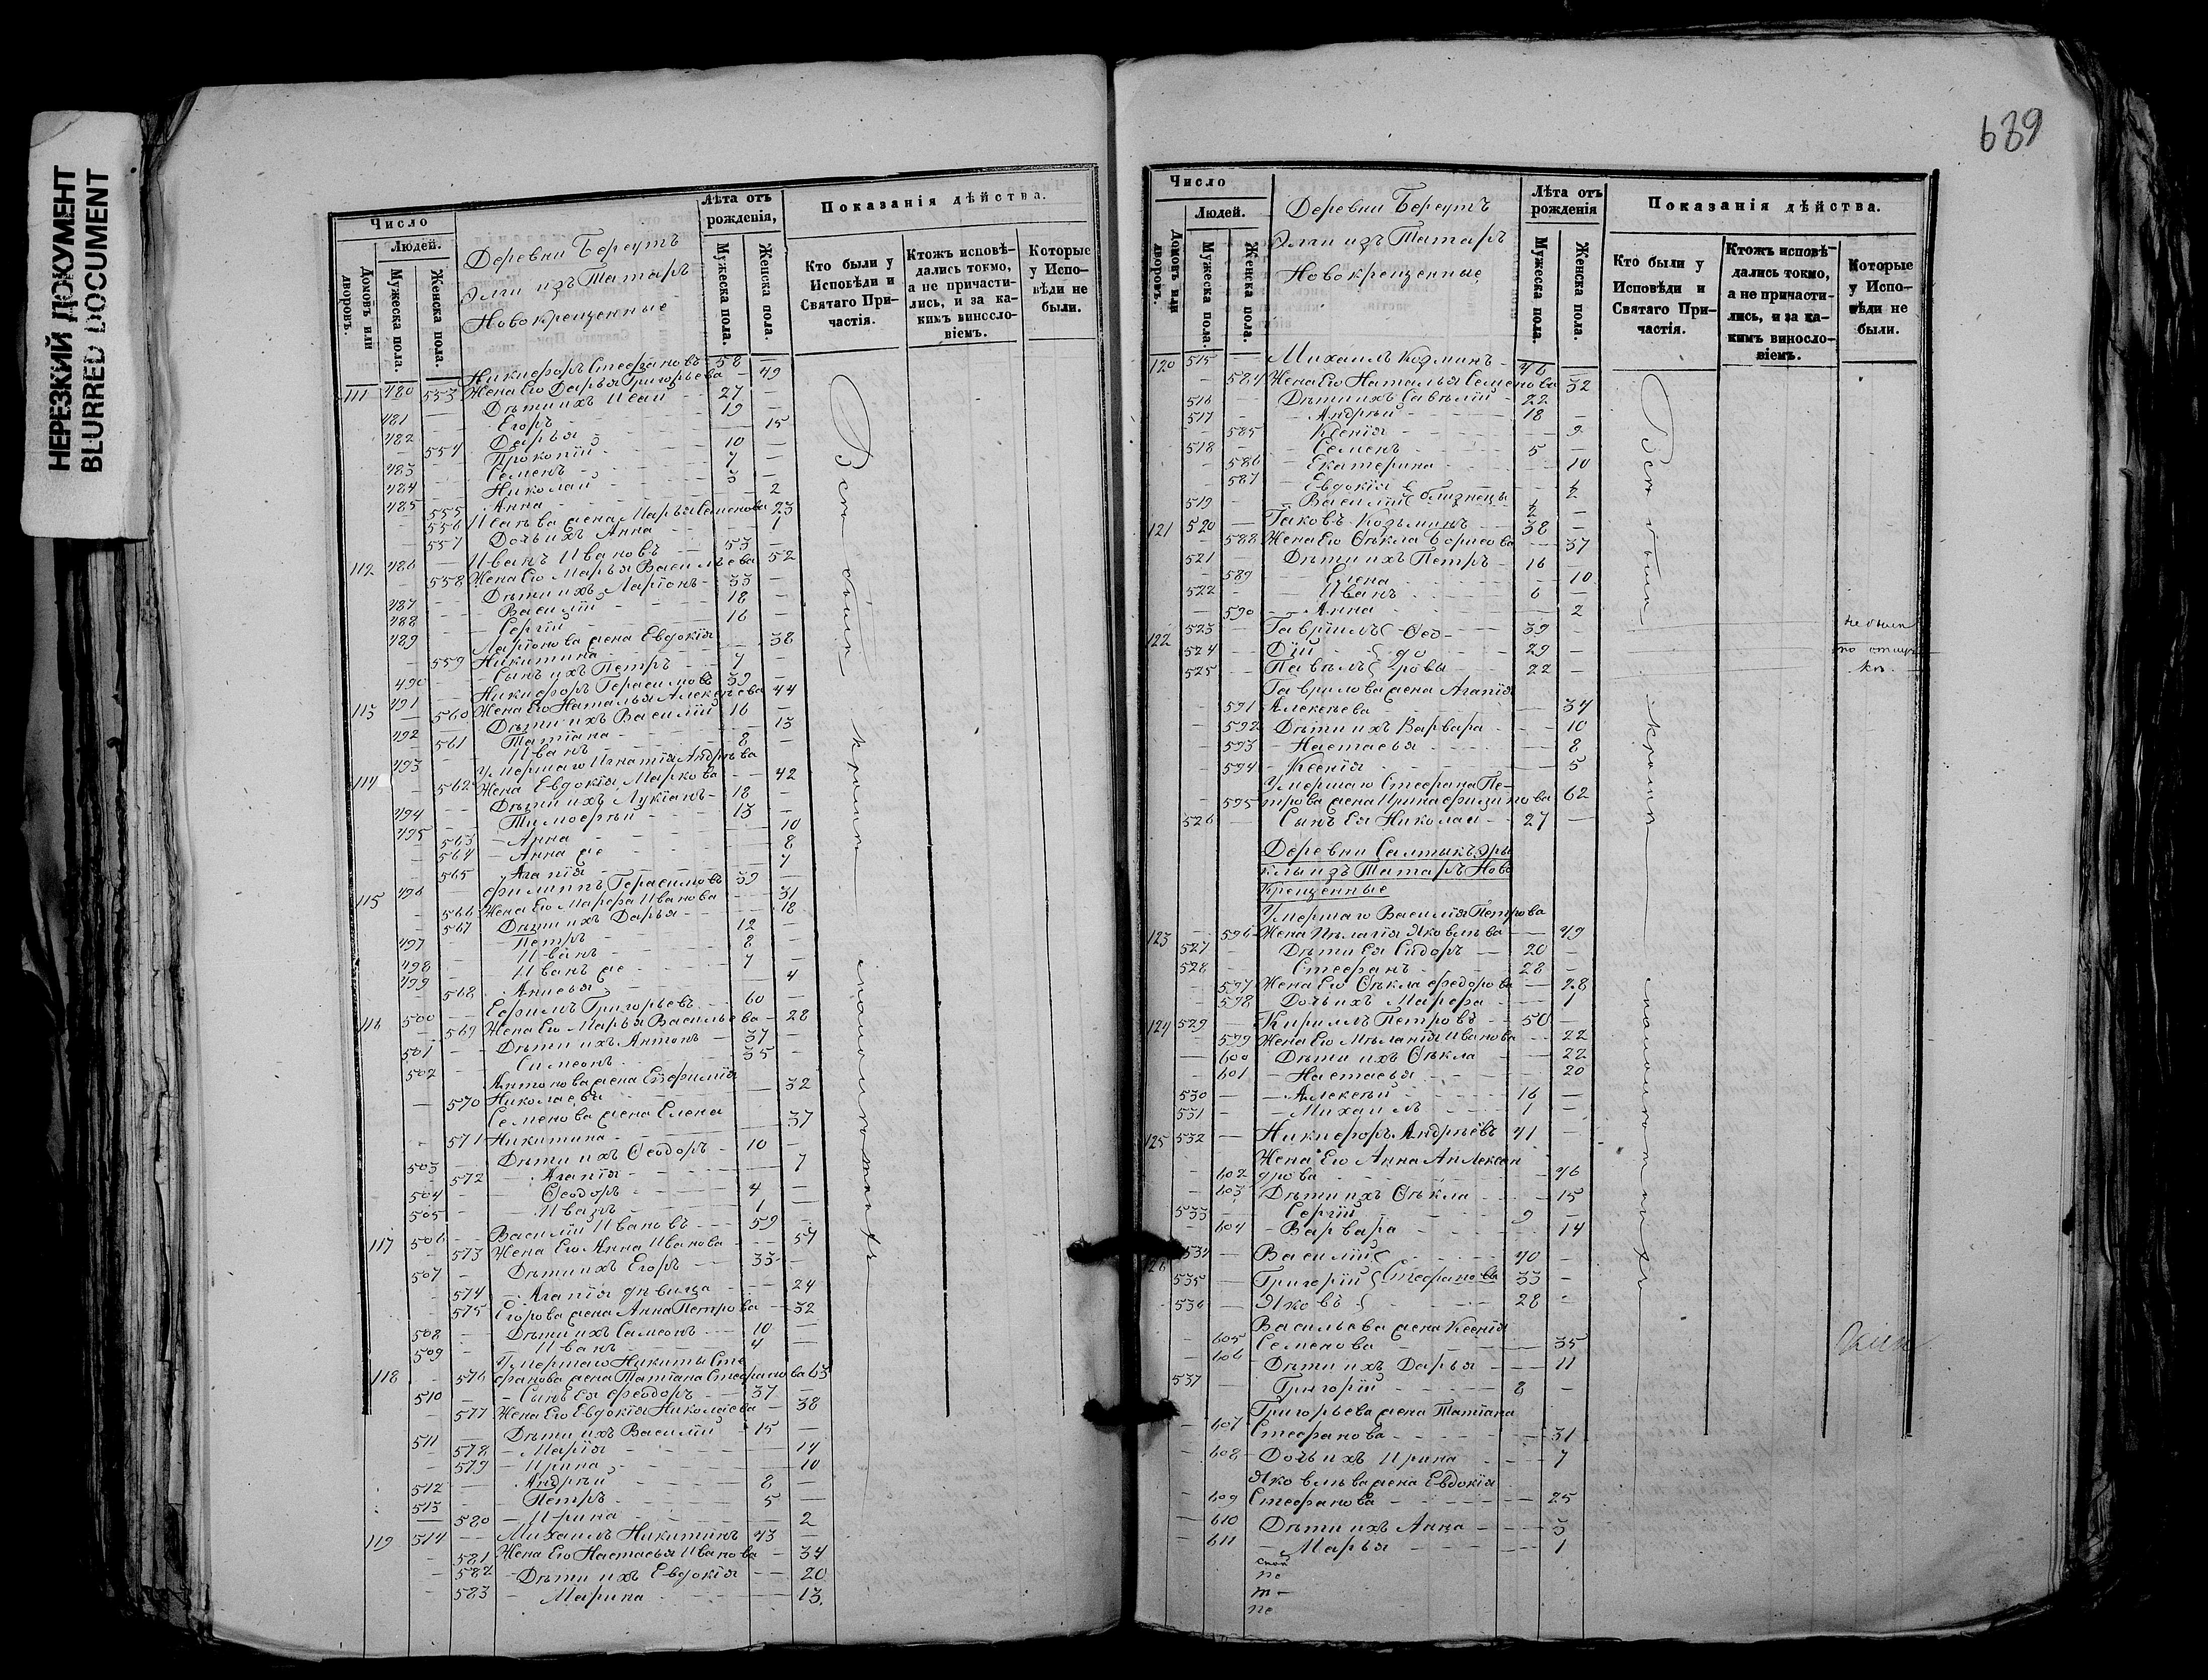 НЕРЕЗКИЙ ДОКУМЕНТ
BLURRED DOCUMENT
Число
Людей.
Домовъ или дворовъ.
Мужеска пола.
Женска пола.
Деревни Береутъ
Элги изъ Татаръ
Новокрещенные
Лѣта отъ рожденія,
Мужеска пола.
Женска пола.
Показанія дѣйства.
Кто были у Исповѣди и Святаго Причастія.
Ктожъ исповѣдались токмо, а не причастились, и за какимъ винословіемъ.
Которые у Исповѣди не были.
111 480 — Никифоръ Стефановъ 58 —
553 Жена Его Дарья Григорьева — 49
481 Дѣти ихъ Исаи 27 —
482 Егоръ 19 —
554 Дарья — 15
483 Прокопій 10 —
484 Семенъ 7 —
485 Николай 3 —
555 Анна — 2
556 Исаева жена Марья Семенова 23
557 Дочь ихъ Анна — 1
112 486 — Иванъ Ивановъ 53 —
558 Жена Его Марья Васильева 52
487 Дѣти ихъ Ларіонъ 33 —
488 Василій 18 —
489 Сергій 16 —
Ларіонова жена Евдокія
559 Никитина — 38
490 Сынъ ихъ Петръ 7 —
113 491 Никифоръ Герасимовъ 39 —
560 Жена Его Наталья Алексѣева 44
492 Дѣти ихъ Василій 16 —
561 Татіана — 13
493 Иванъ 8 —
114 Умершаго Игнатія Андрѣева
562 Жена Евдокія Маркова — 42
494 Дѣти ихъ Лукіанъ 18 —
495 Тимофѣй 13 —
563 Анна — 10
564 Анна же — 8
565 Агапія — 7
115 496 Филиппъ Герасимовъ 39 —
566 Жена Его Марфа Иванова — 31
567 Дѣти ихъ Дарья — 18
497 Петръ 12 —
498 Иванъ 8 —
499 Иванъ же 7 —
568 Анисья — 4
116 500 Ефимъ Григорьевъ 60 —
569 Жена Его Марья Васильева — 28
501 Дѣти ихъ Антонъ 37 —
502 Симеонъ 35 —
Антонова жена Евфимія
570 Николаева — 32
Семенова жена Елена
571 Никитина — 37
503 Дѣти ихъ Ѳеодоръ 10 —
572 Агапія — 7
504 Ѳеодоръ 4 —
505 Иванъ 1 —
117 506 Василій Ивановъ 59 —
573 Жена Его Анна Иванова — 57
507 Дѣти ихъ Егоръ 33 —
574 Агапія дѣвица — 24
575 Егорова жена Анна Петрова — 32
508 Дѣти ихъ Самсонъ 10 —
509 Иванъ 4 —
118 Умершаго Никиты Сте
576 фанова жена Татіана Стефанова 63
510 Сынъ ея Феодоръ 37 —
577 Жена Его Евдокія Николаева — 38
511 Дѣти ихъ Василій 15 —
578 Марія — 14
579 Ирина — 10
512 Андрѣй 8 —
513 Петръ 5 —
580 Ирина — 2
119 514 Михаилъ Никитинъ 43 —
581 Жена Его Настасья Иванова — 34
582 Дѣти ихъ Евдокія — 20
583 Марина — 13.
Всѣ были кромѣ малолѣтнихъ
639
Число
Людей.
Домовъ или дворовъ.
Мужеска пола.
Женска пола.
Деревни Береутъ
Элги изъ Татаръ
Новокрещенные
Лѣта отъ рожденія
Мужеска пола.
Женска пола.
Показанія дѣйства.
Кто были у Исповѣди и Святаго Причастія.
Ктожъ исповѣдались токмо, а не причастились, и за какимъ винословіемъ.
Которые у Исповѣди не были.
120 515 — Михаилъ Козминъ 40 —
584 Жена Его Наталья Семенова 32
516 Дѣти ихъ Савелій 22 —
517 Андрѣй 18 —
585 Ксенія — 9
518 Семенъ 5 —
586 Екатерина — 10
587 Евдокія
519 Василій близнецы
121 520 Іаковъ Козьминъ 38 —
588 Жена Его Ѳекла Борисова — 37
521 Дѣти ихъ Петръ 16 —
589 Елена — 10
522 Иванъ 6 —
590 Анна — 2
122 523 Гавріилъ Ѳео- 39 —
524 Дій до 29 —
525 Павелъ ровы 22 —
Гаврилова жена Агапія
591 Алексѣева — 34
592 Дѣти ихъ Варвара — 10
593 Настасья — 8
594 Ксенія — 5
Умершаго Стефана Пе-
595 трова жена Ирина Филипова 62
526 Сынъ Ея Николай 27 —
Деревни Салтыкъ Эры
клы изъ Татаръ Ново
Крещенные
Умершаго Василія Петрова
123 596 Жена Пелагія Яковлева — 49
527 Дѣти Ея Сидоръ 20 —
528 Стефанъ 28 —
597 Жена Его Ѳекла Федорова — 28
598 Дочь ихъ Марфа — 1
124 529 Кириллъ Петровъ 50 —
599 Жена Его Меланія Иванова — 22
600 Дѣти ихъ Ѳекла — 22
601 Настасья — 20
530 Алексѣй 16 —
531 Михаилъ 1 —
125 532 Никифоръ Андрѣевъ 41 —
Жена Его Анна Алексан
602 дрова — 46
603 Дѣти ихъ Ѳекла — 15
533 Сергій 9 —
604 Варвара — 14
126 534 Василій 40 —
535 Григорій Стефанова 33 —
536 Яковъ 28 —
Васильева жена Ксенія
605 Семенова — 35
606 Дѣти ихъ Дарья — 11
537 Григорій 8 —
Григорьева жена Татіана
607 Стефанова — 31
608 Дочь ихъ Ирина — 7
Яковлева жена Евдокія
609 Стефанова — 25
610 Дѣти ихъ Анна — 3
611 Марья — 1
Всѣ были кромѣ малолѣтнихъ
не были